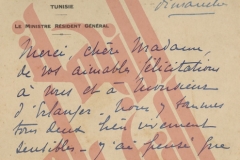 TUNISIE
LE MINISTRE RÉSIDENT GÉNÉRAL
Dimanche
Merci, chère Madame,
de vos aimables félicitations
à mes et à Monsieur
d'Erlanger. nous y sommes
tous deux bien vivement
sensibles – j'ai pensé que